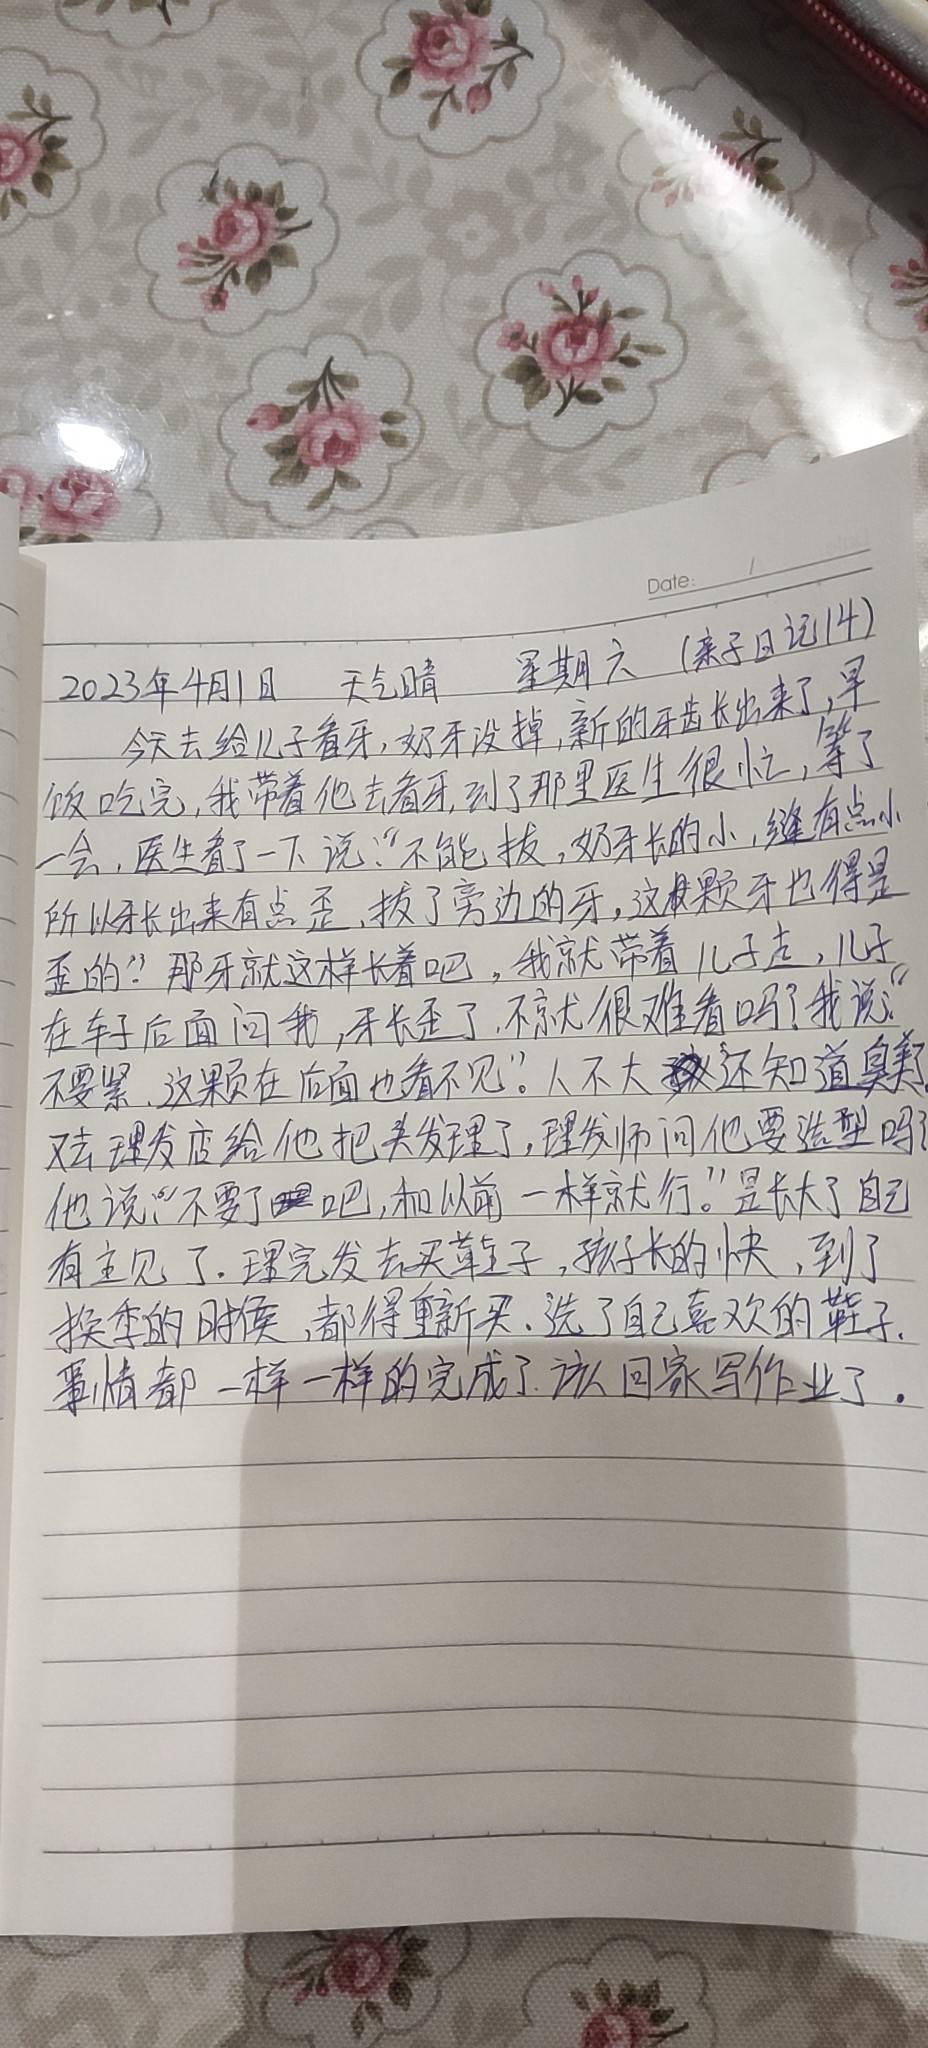 Date: /
2023年4月1日 天气晴 星期六 (亲子日记14)
今天去给儿子看牙,奶牙没掉,新的牙齿长出来了,早
饭吃完,我带着他去看牙,到了那里医生很忙,等了
一会,医生看了一下说:“不能拔,奶牙长的小,缝有点小
所以牙长出来有点歪,拔了旁边的牙,这颗牙也得是
歪的”?那牙就这样长着吧,我就带着儿子走,儿子
在车子后面问我,牙长歪了,不就很难看吗?我说:“
不要紧,这颗在后面也看不见”。人不大还知道臭美,
又去理发店给他把头发理了,理发师问他要造型吗?
他说:“不要了吧,和以前一样就行。”是长大了自己
有主见了。理完发去买鞋子,孩子长的快,到了
换季的时候,都得重新买,选了自己喜欢的鞋子,
事情都一样一样的完成了,该回家写作业了。